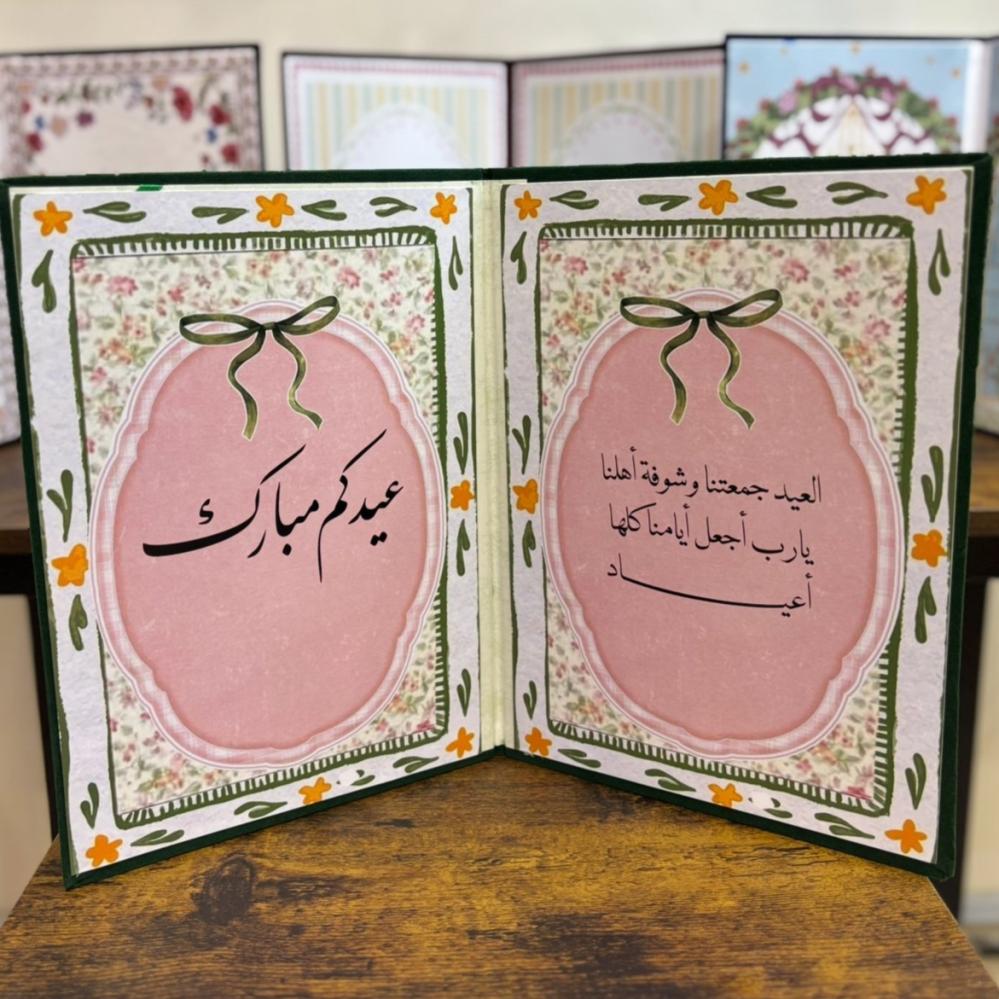 العيد جمعتنا وشوفة أهلنا
يارب أجعل أيامنا كلها
أعيـــاد
عيدكم مبارك